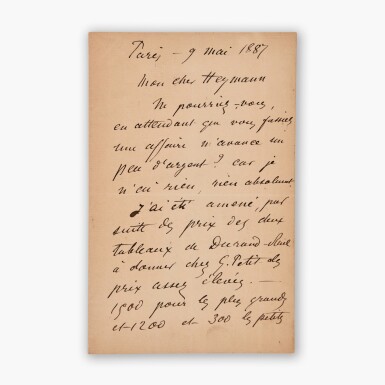 Paris - 9 mai 1887
Mon cher Heymann
Ne pourriez-vous,
en attendant que vous fassiez
une affaire m'avancer un
peu d'argent? car je
n'ai rien, rien absolument.
J'ai été amené, par
suite des prix des deux
tableaux de Durand-Ruel
à donner chez G. Petit des
prix assez élevés. —
1500 pour les plus grands
et 1200 et 300 les petits